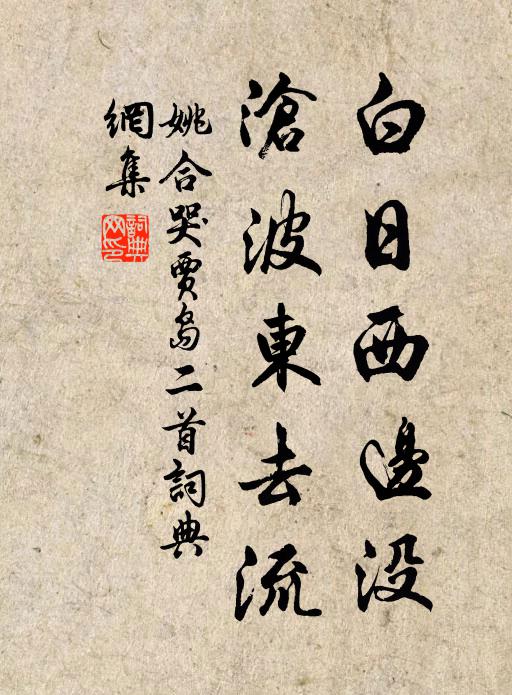 白日西邊没
滄波東去流
姚合哭賈島二首詞典
網集
詞典
网印